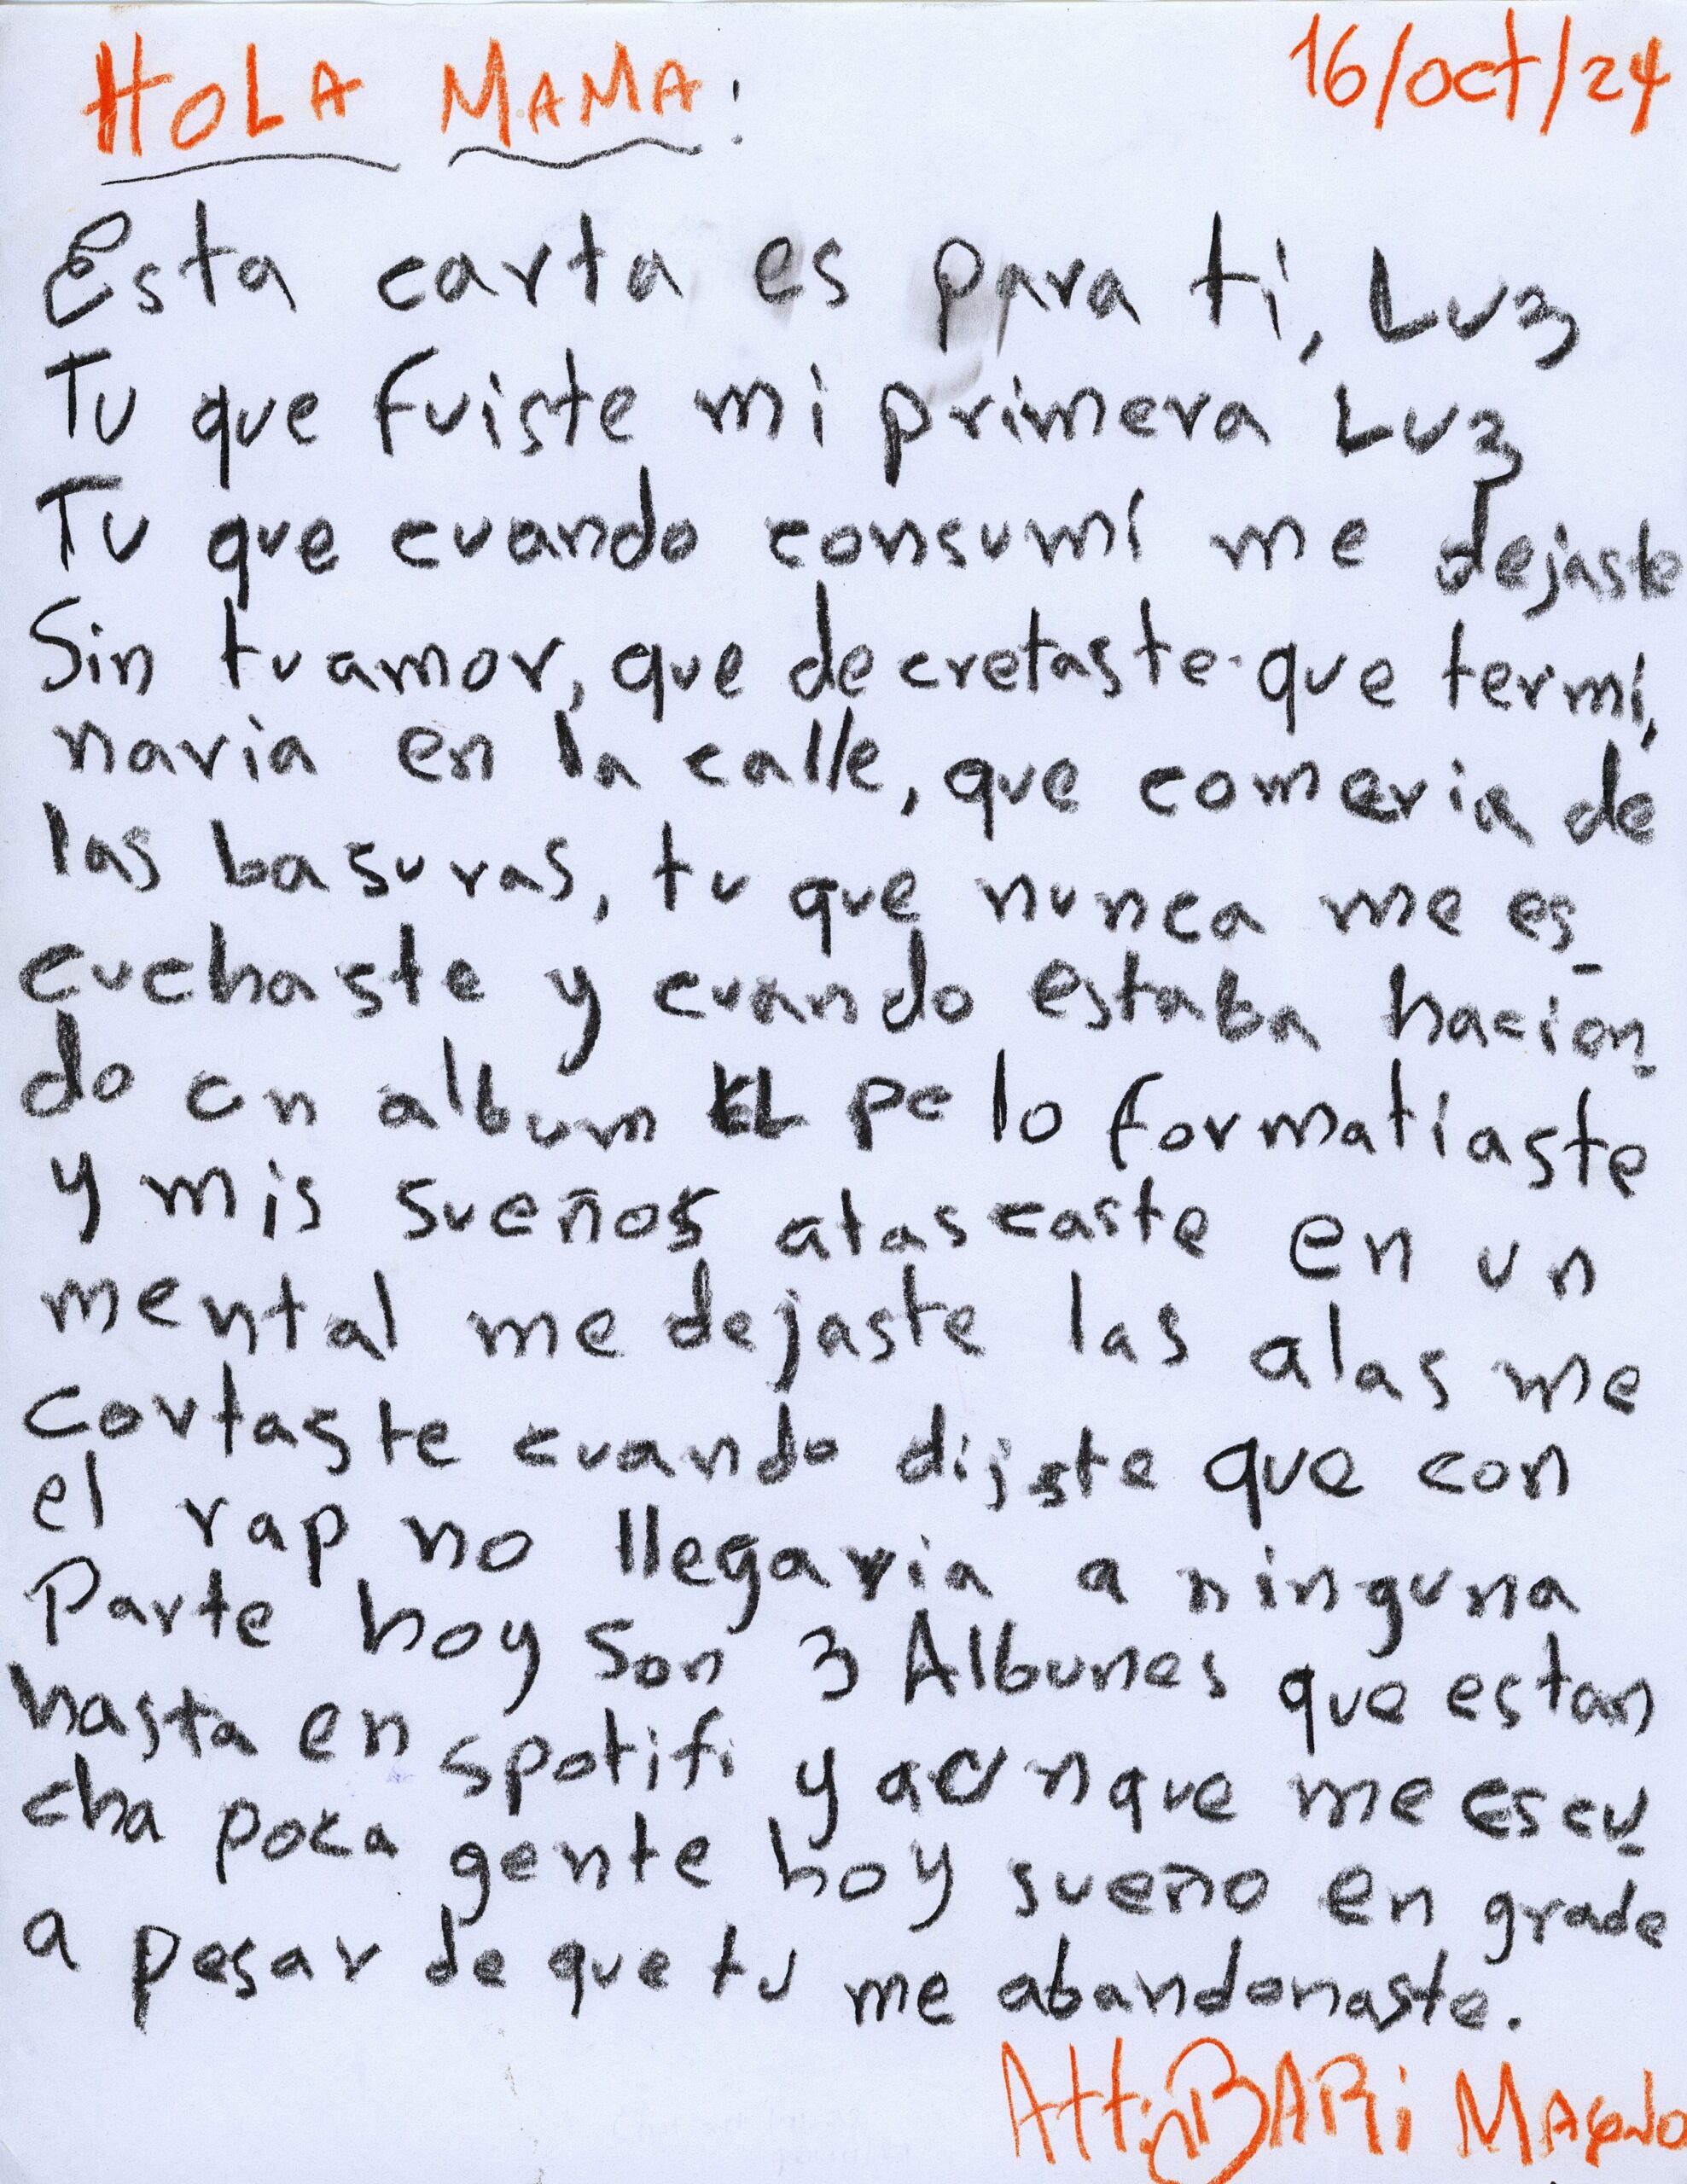 HOLA MAMA: 16/oct/24
Esta carta es para ti, Luz
Tu que fuiste mi primera Luz
Tu que cuando consumí me dejaste
Sin tu amor, que decretaste que termi,
naria en la calle, que comeria de
las basuras, tu que nunca me es_
cuchaste y cuando estaba hacien_
do un album EL pc lo formatiaste
y mis sueños atascaste en un
mental me dejaste las alas me
cortaste cuando dijste que con
el rap no llegaria a ninguna
Parte hoy son 3 Albunes que estan
hasta en spotifi y aunque me escu_
cha poca gente hoy sueño en grade
a pesar de que tu me abandonaste.
Att: BARi MAGNO